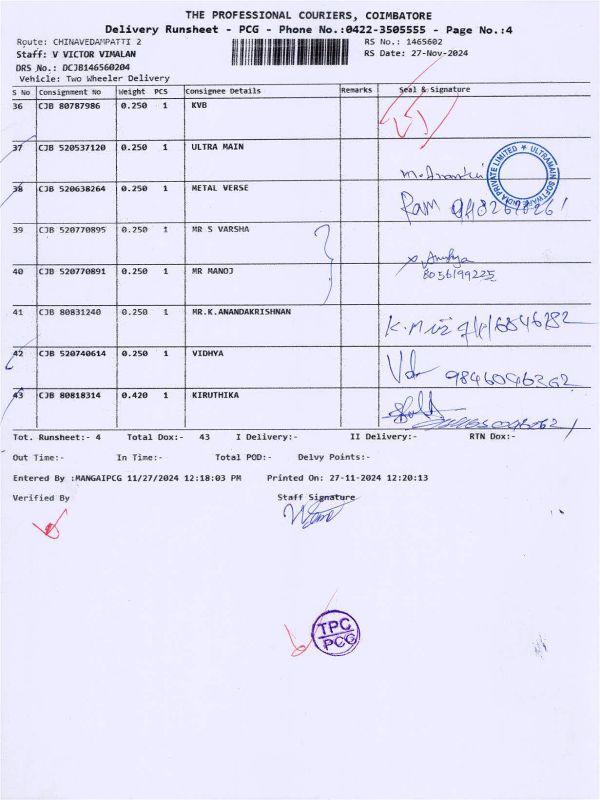 THE PROFESSIONAL COURIERS, COIMBATORE
Delivery Runsheet - PCG - Phone No.:0422-3505555 - Page No.:4
Route: CHINAVEDAMPATTI 2 RS No.: 1465602
Staff: V VICTOR VIMALAN RS Date: 27-Nov-2024
DRS No.: DCJB146560204
Vehicle: Two Wheeler Delivery
S No Consignment No Weight PCS Consignee Details Remarks Seal & Signature
36 CJB 80787986 0.250 1 KVB
37 CJB 520537120 0.250 1 ULTRA MAIN
ULTRAMAIN SOFTWARE INDIA PRIVATE LIMITED
38 CJB 520638264 0.250 1 METAL VERSE Ram
39 CJB 520770895 0.250 1 MR S VARSHA
40 CJB 520770891 0.250 1 MR MANOJ 8056199225
41 CJB 80831240 0.250 1 MR.K.ANANDAKRISHNAN
42 CJB 520740614 0.250 1 VIDHYA 9846046362
43 CJB 80818314 0.420 1 KIRUTHIKA
Tot. Runsheet:- 4 Total Dox:- 43 I Delivery:- II Delivery:- RTN Dox:-
Out Time:- In Time:- Total POD:- Delvy Points:-
Entered By :MANGAIPCG 11/27/2024 12:18:03 PM Printed On: 27-11-2024 12:20:13
Verified By Staff Signature
TPC
PCG